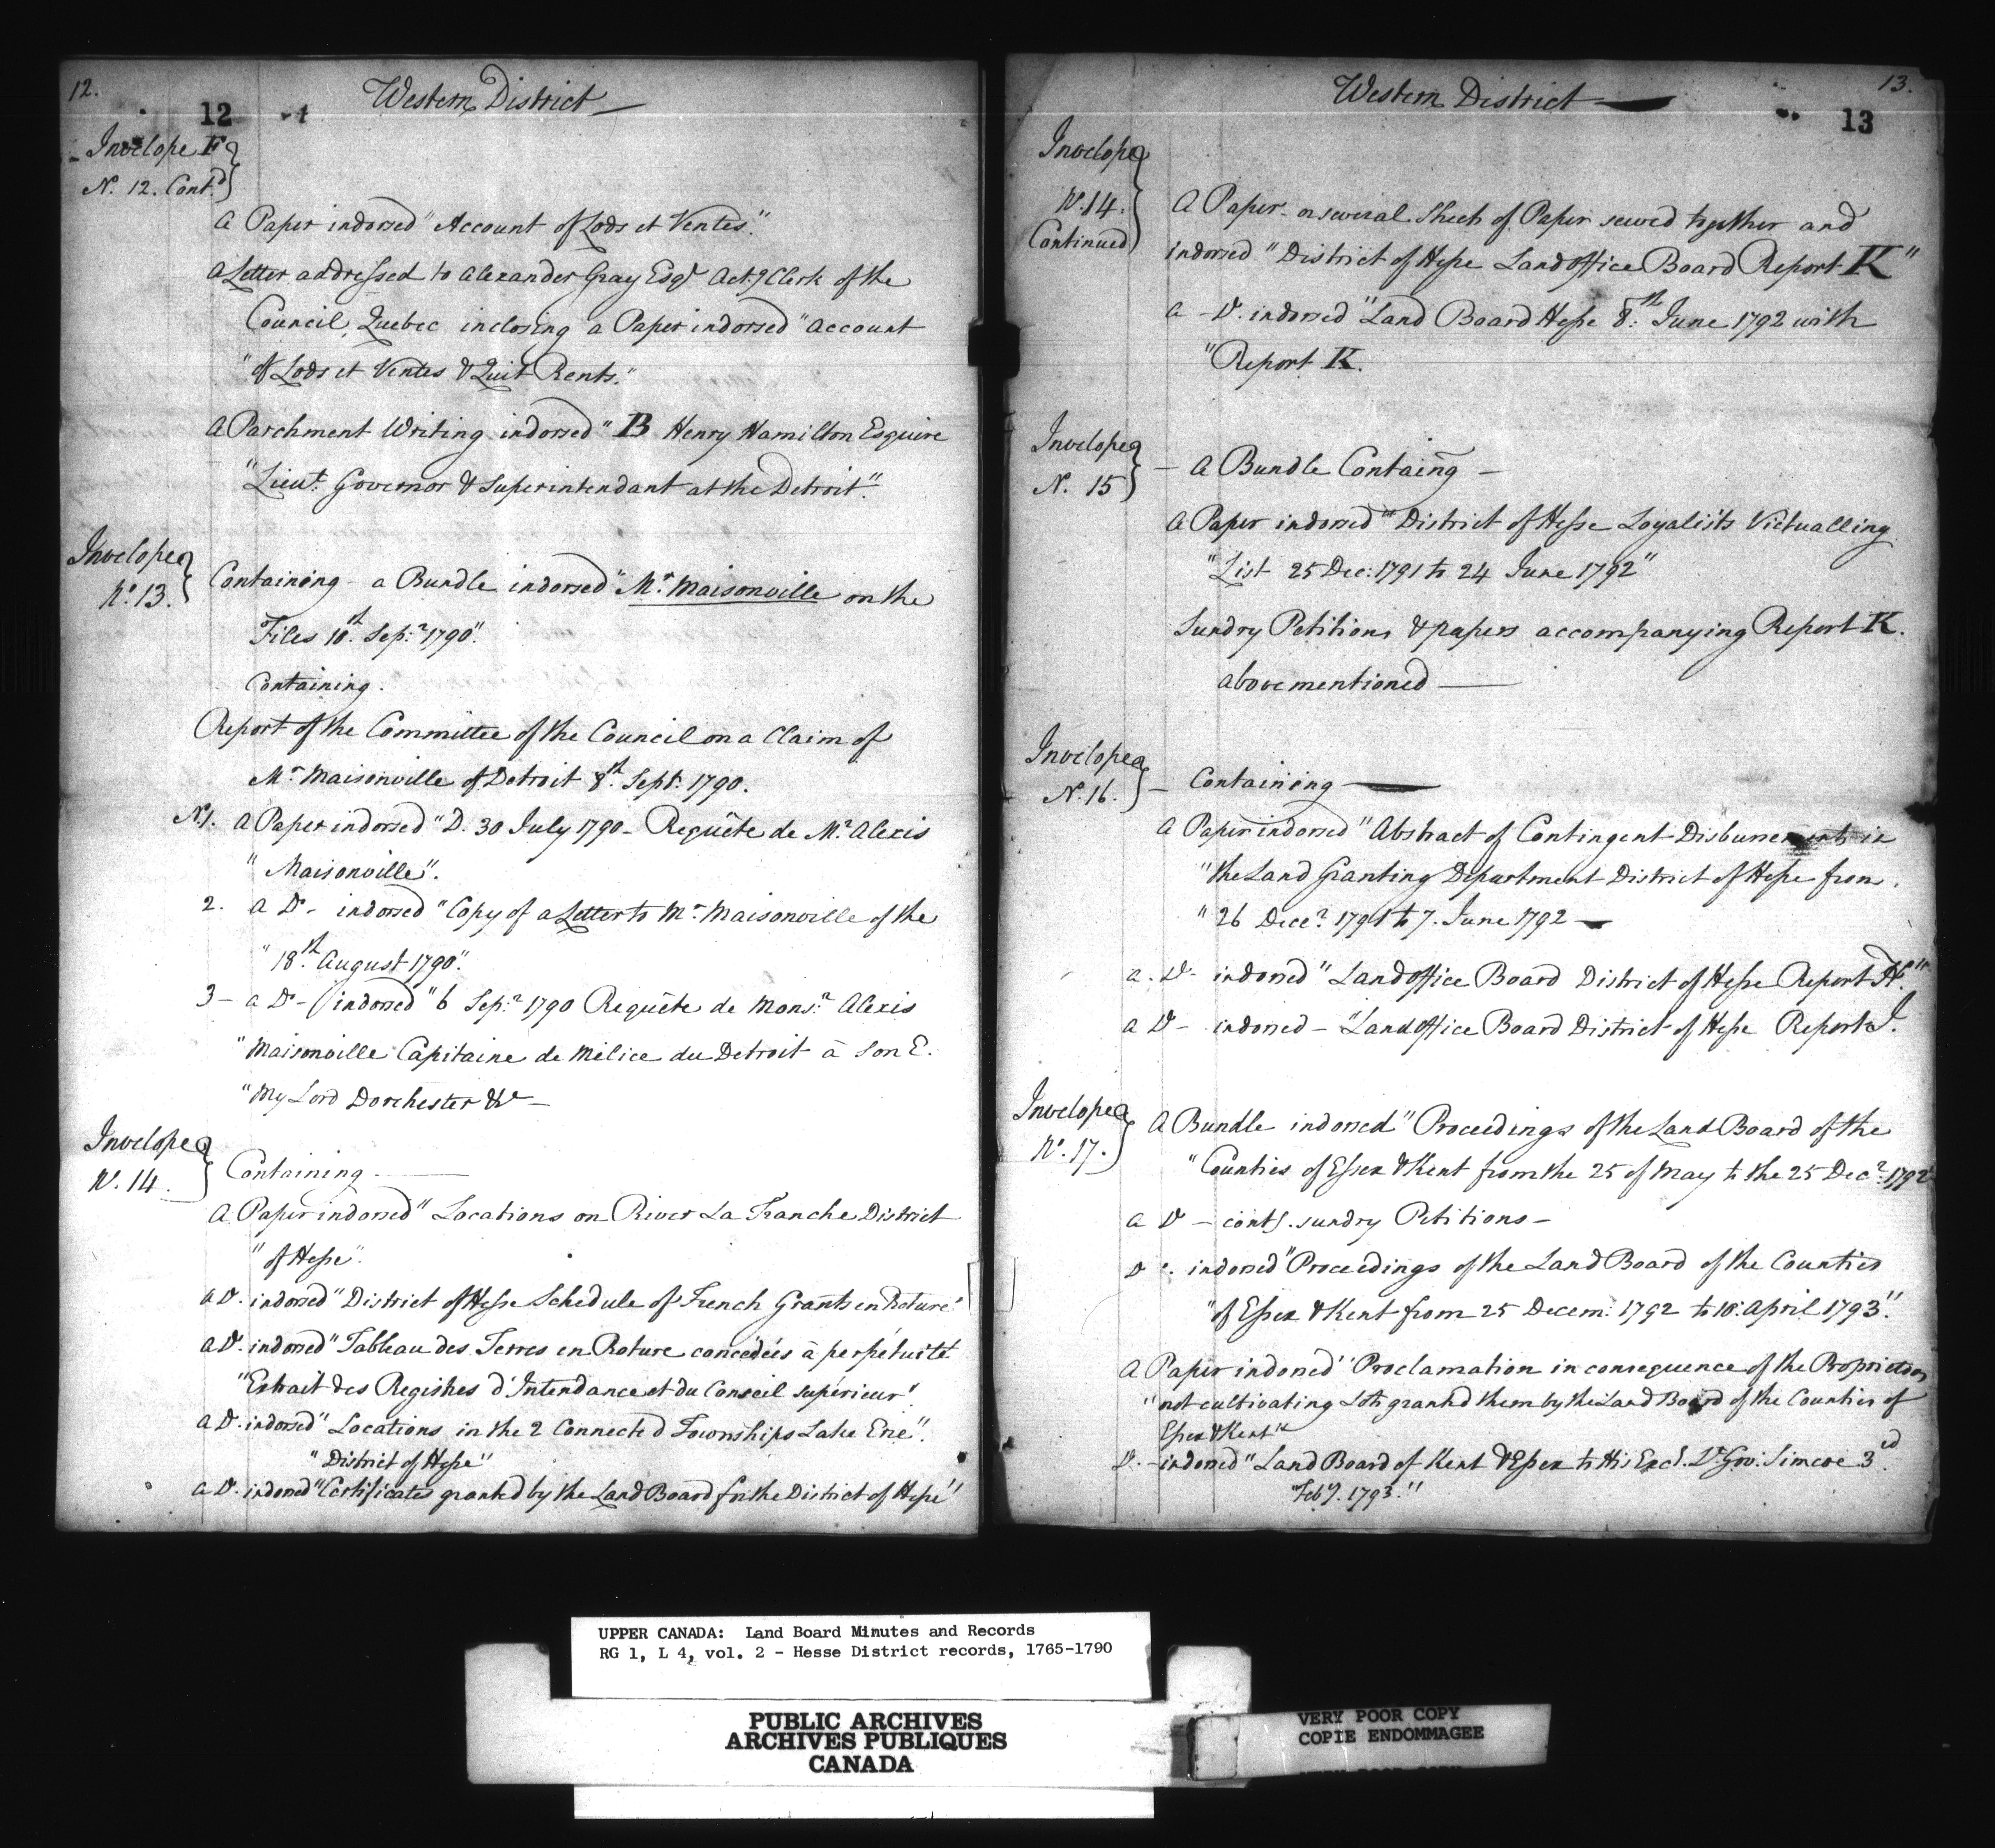 12.
Western District
12
Invelope F
N. 12. Contd
A Paper indorsed "Account of Lods et Ventes."
A Letter addressed to Alexander Gray Esqr Actg Clerk of the
Council, Quebec inclosing a Paper indorsed "Account
"of Lods et Ventes & Quit Rents."
A Parchment Writing indorsed "B Henry Hamilton Esquire
"Lieut. Governor & Superintendant at the Detroit."
Invelope
No. 13.
Containing a Bundle indorsed "Mr. Maisonville on the
Files 18th. Sepr. 1790".
Containing.
Report of the Committee of the Council on a Claim of
Mr. Maisonville of Detroit 8th. Sept. 1790.
N.1. A Paper indorsed "D. 30 July 1790 - Requête de Mr. Alexis
"Maisonville".
2. A Do - indorsed "Copy of a Letter to Mr. Maisonville of the
"18th. August 1790".
3 - a Do - indorsed "6 Sepr. 1790 Requête de Monsr. Alexis
"Maisonville Capitaine de Milice du Detroit à Son E.
"My Lord Dorchester &c -
Invelope
N. 14.
Containing
A Paper indorsed "Locations on River La Tranche District
"of Hesse".
A Do. indorsed "District of Hesse Schedule of French Grants en Roture"
A Do. indorsed "Tableau des Terres en Roture concédées à perpétuité
"Extrait des Registres d'Intendance et du Conseil supérieur".
A Do. indorsed "Locations in the 2 Connected Townships Lake Erie".
"District of Hesse"
A Do. indorsed "Certificates granted by the Land Board for the District of Hesse"
13.
Western District
13
Invelope
N. 14.
Continued
A Paper or several Sheets of Paper sewed together and
indorsed "District of Hesse Land Office Board Report K"
a - Do. indorsed "Land Board Hesse 8th. June 1792 with
"Report K.
Invelope
N. 15
- A Bundle Containg -
A Paper indorsed "District of Hesse Loyalists Victualling
"List 25 Dec: 1791 to 24 June 1792"
Sundry Petitions & papers accompanying Report K.
abovementioned
Invelope
N. 16.
- Containing
A Paper indorsed "Abstract of Contingent Disbursements in
"the Land Granting Department District of Hesse from
"26 Decer. 1791 to 7. June 1792 -
a. Do - indorsed "Land Office Board District of Hesse Report H."
a Do - indorsed - "Land Office Board District of Hesse Report I.
Invelope
No. 17.
A Bundle indorsed "Proceedings of the Land Board of the
"Counties of Essex & Kent from the 25 of May to the 25 Decr. 1792"
a Do - contg. sundry Petitions -
Do indorsed "Proceedings of the Land Board of the Counties
"of Essex & Kent from 25 Decem: 1792 to 18. April 1793".
A Paper indorsed "Proclamation in consequence of the Proprietors
"not cultivating Lots granted them by the Land Board of the Counties of
Essex & Kent"
Do. - indorsed "Land Board of Kent & Essex to His Excl. Lt. Gov: Simcoe 3rd
"Feby. 1793."
UPPER CANADA: Land Board Minutes and Records
RG 1, L 4, vol. 2 - Hesse District records, 1765-1790
PUBLIC ARCHIVES
ARCHIVES PUBLIQUES
CANADA
VERY POOR COPY
COPIE ENDOMMAGEE